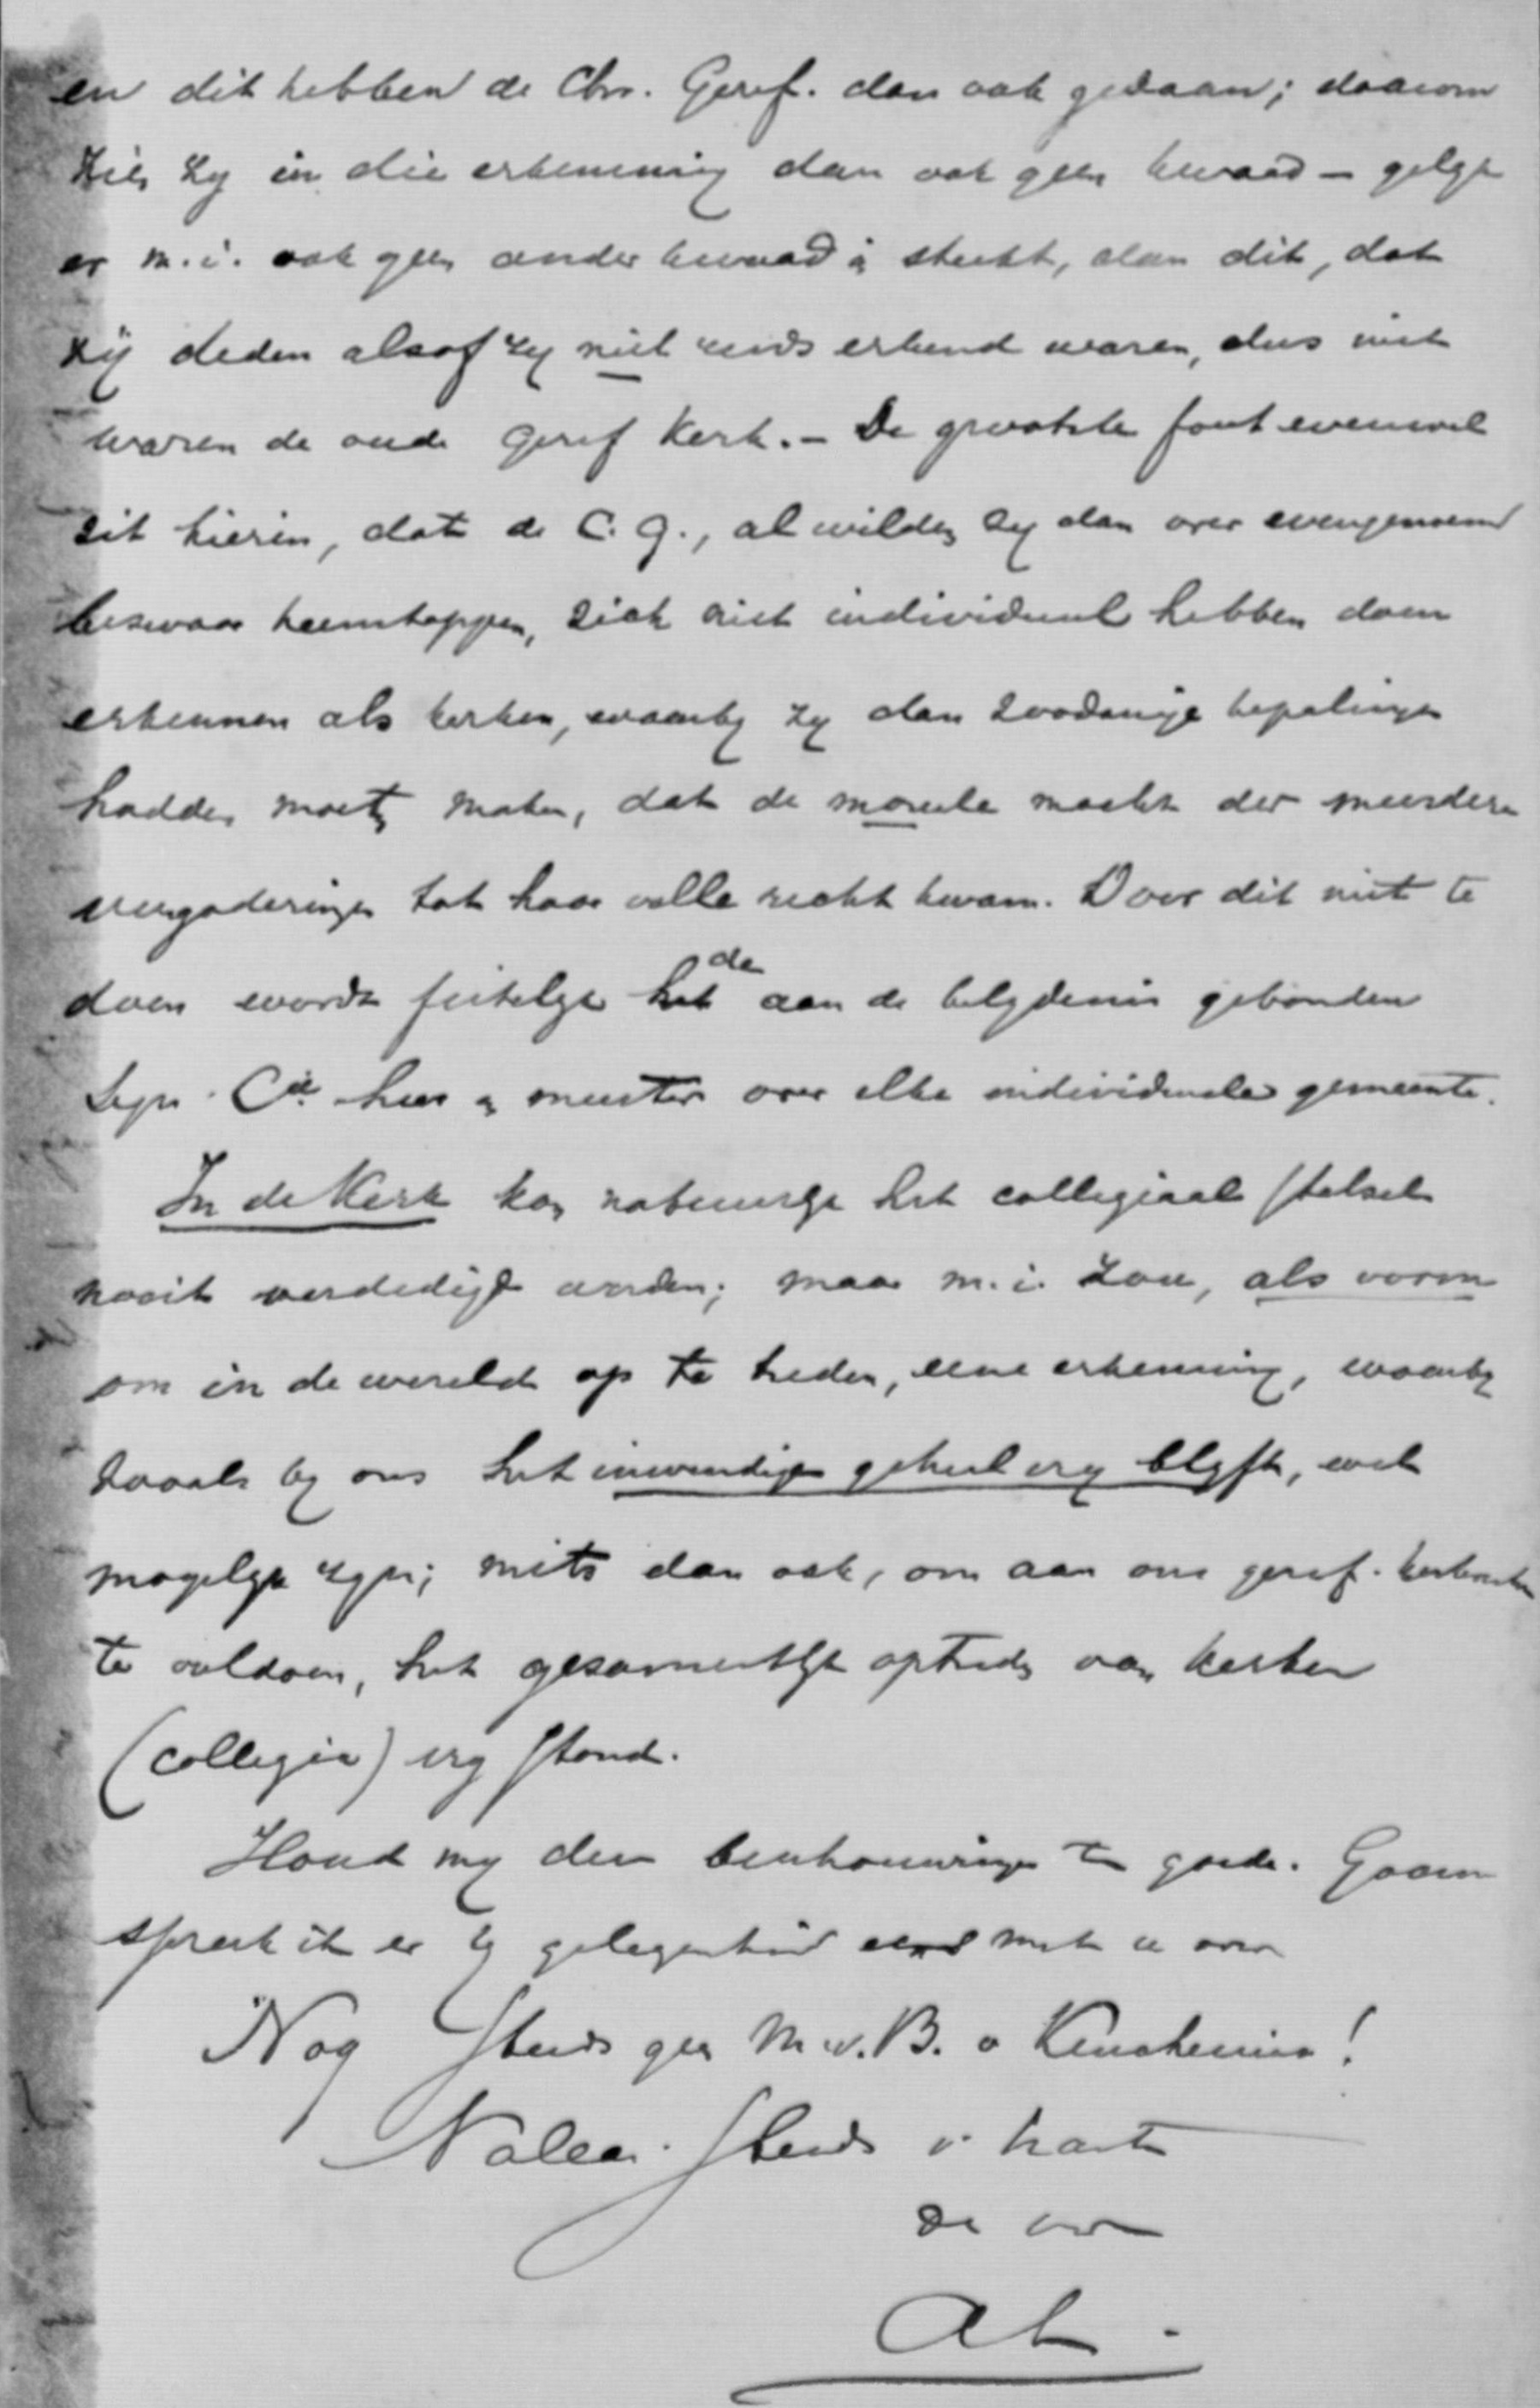 en dit hebben de Chr. Geref. dan ook gedaan; daarom
zien zy in die erkenning dan ook geen kwaad – gelyk
er m.i. ook geen ander kwaad in steekt, dan dit, dat
zÿ deden alsof zy niet reeds erkend waren, dus niet
waren de oude Geref Kerk. – De grootste fout evenwel
zit hierin, dat de C. G., al wilden zy dan over evengenoemd
bezwaar heenstappen, zich niet individueel hebben doen
erkennen als kerken, waarby zy dan zoodanige bepalingen
hadden moeten maken, dat de moreele macht der meerdere
vergaderingen tot haar volle recht kwam. Door dit niet te
doen wordt feitelyk de aan de belydenis gebonden
Syn. Cie heer en meester over elke individueele gemeente.
In de Kerk kan natuurlyk het collegiaal stelsel
nooit verdedigd worden; maar m.i. zou, als vorm
om in de wereld op te treden, eene erkenning, waarby
zooals by ons het inwendige geheel vry blyft, wel
mogelyk zyn; mits dan ook, om aan ons geref. kerkrecht
te voldoen, het gezamentlyk optreden van kerken
(collegia) vry stond.
Houd my deze beschouwingen te goede. Gaarne
spreek ik er by gelegenheid eens met u over
Nog steeds geen M.v.B. o Keuchenius!
Steeds v. harte
de uw